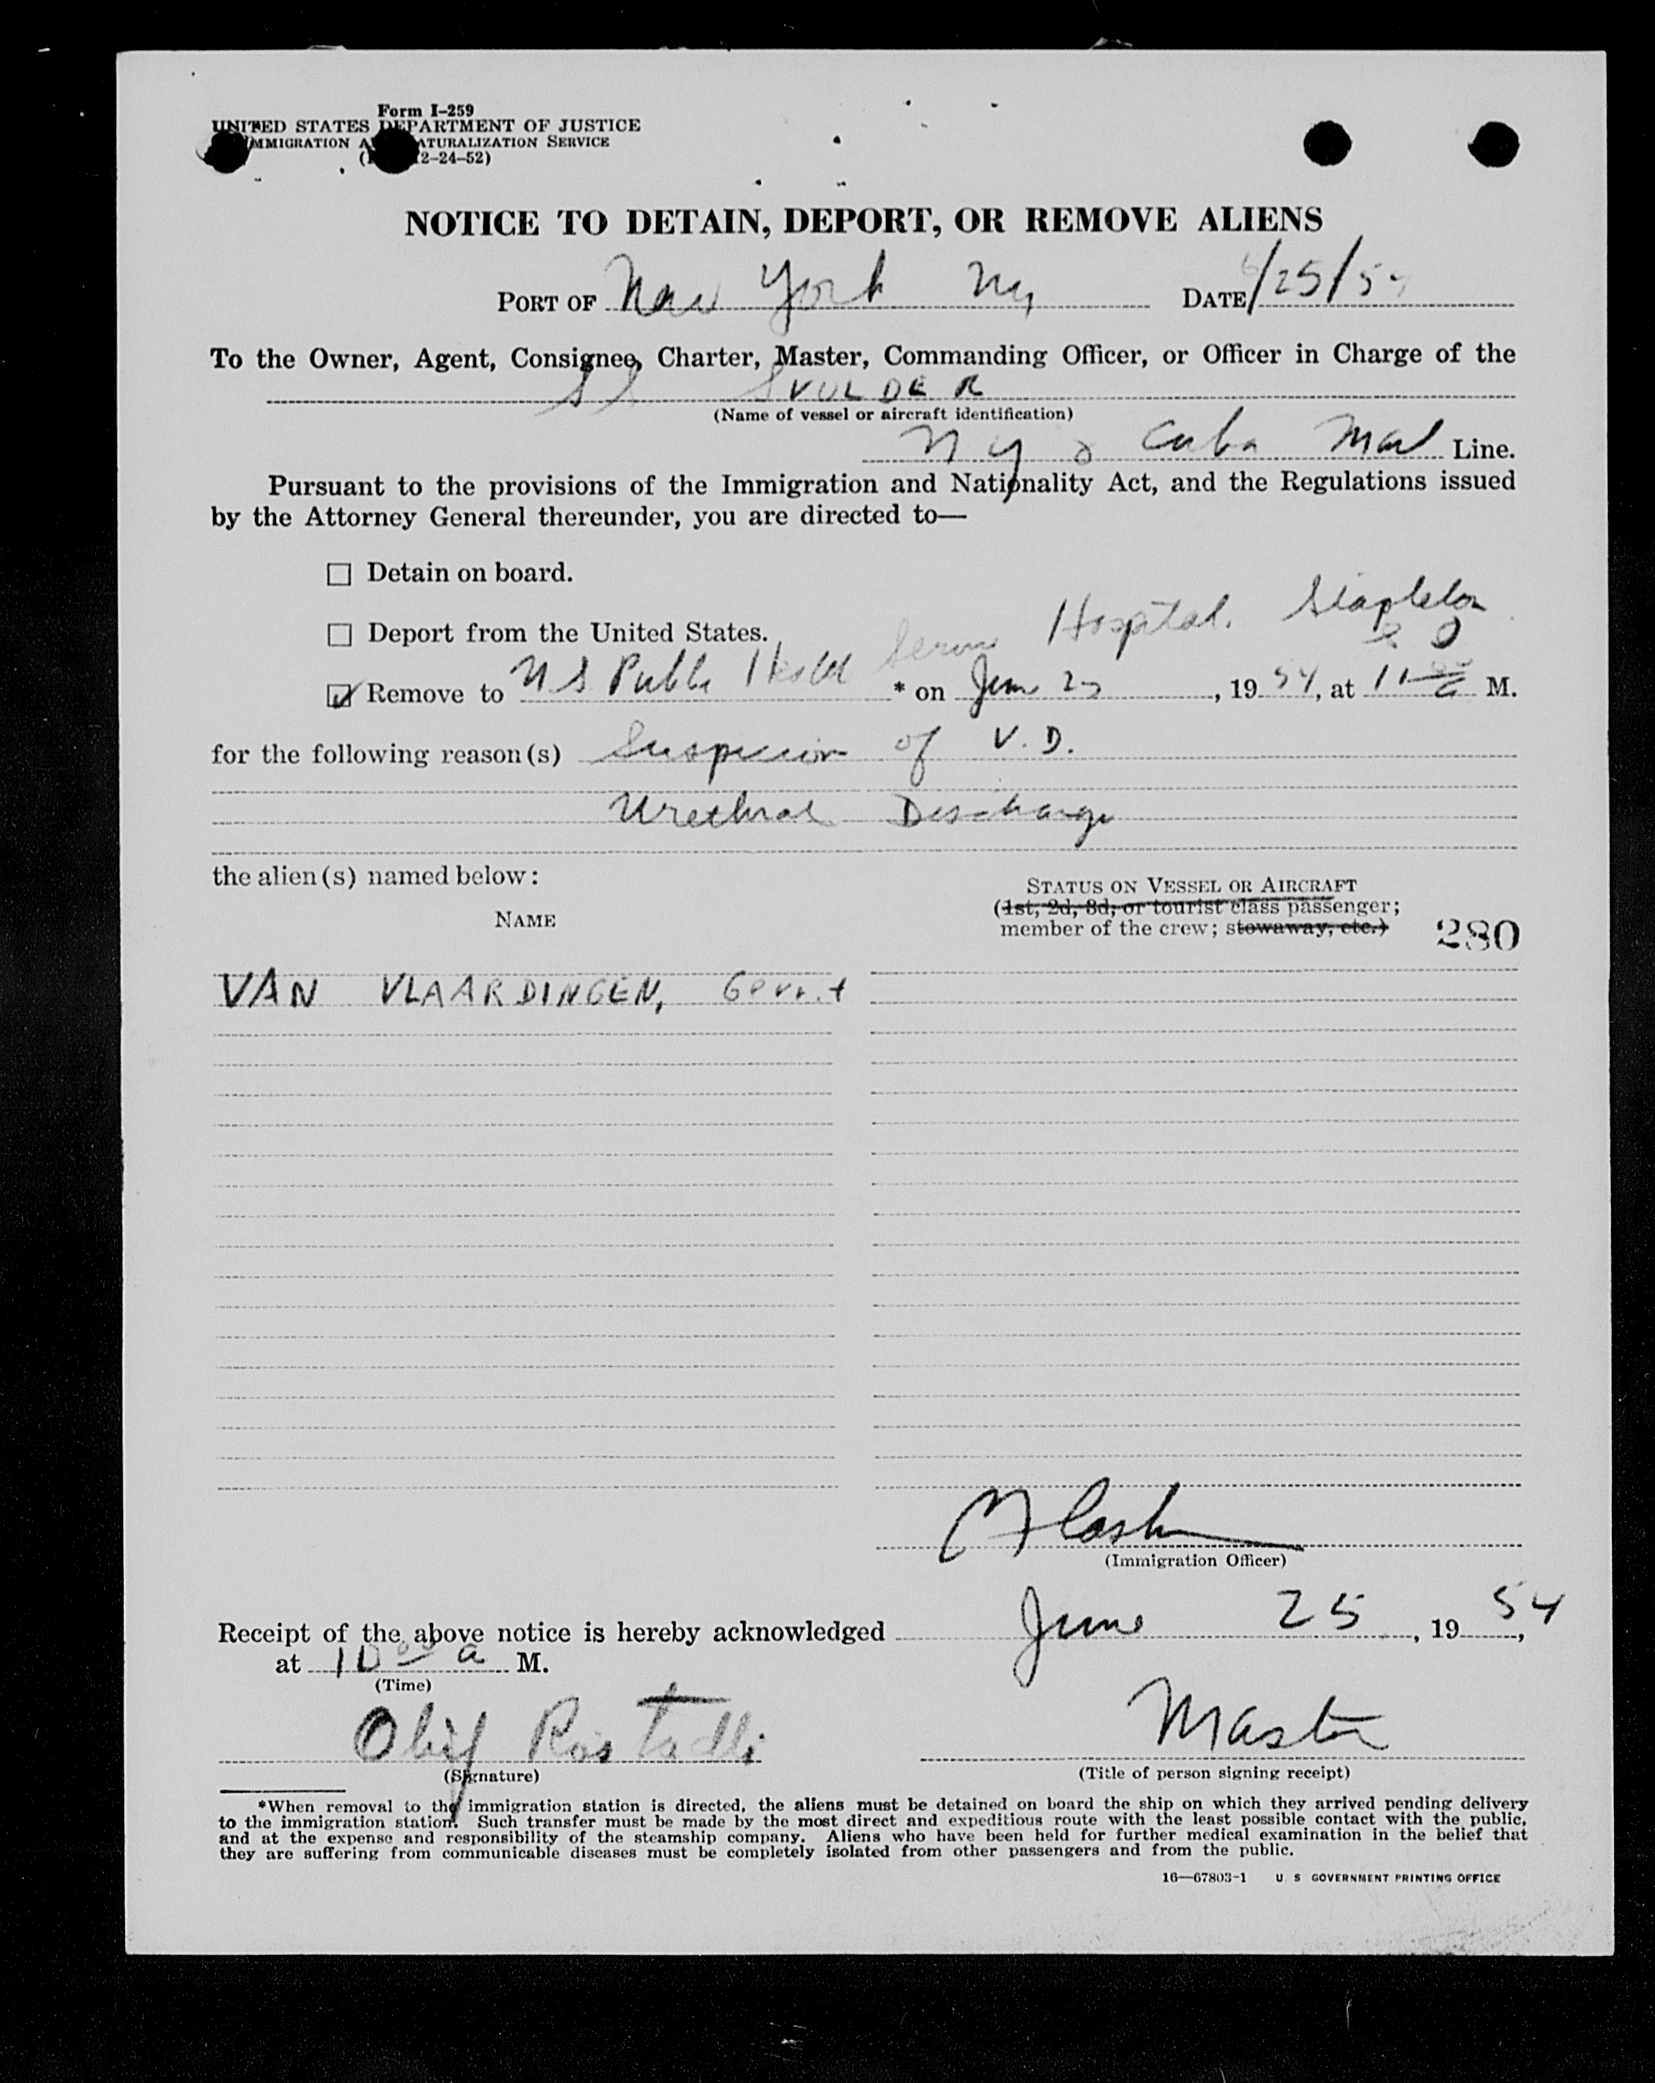 Form I-259
UNITED STATES DEPARTMENT OF JUSTICE
IMMIGRATION AND NATURALIZATION SERVICE
2-24-52)
NOTICE TO DETAIN, DEPORT, OR REMOVE ALIENS
PORT OF New York Ny DATE 6/25/54
To the Owner, Agent, Consignee, Charter, Master, Commanding Officer, or Officer in Charge of the
SS SVULDER
(Name of vessel or aircraft identification)
N Y & Cuba Mail Line.
Pursuant to the provisions of the Immigration and Nationality Act, and the Regulations issued
by the Attorney General thereunder, you are directed to—
☐ Detain on board.
☐ Deport from the United States.
☑ Remove to U S Public Health Serv Hospital. Stapleton * on June 25, 1954, at 11 00 a M.
for the following reason(s) Suspicion of V. D.
Urethral Discharge
the alien(s) named below:
STATUS ON VESSEL OR AIRCRAFT
NAME
(1st, 2d, 3d, or tourist class passenger;
member of the crew; stowaway, etc.)
280
VAN VLAARDINGEN, Gerrit
(Immigration Officer)
Receipt of the above notice is hereby acknowledged June 25, 1954,
at 10 00 a M.
(Time)
Master
(Signature)
(Title of person signing receipt)
*When removal to the immigration station is directed, the aliens must be detained on board the ship on which they arrived pending delivery
to the immigration station. Such transfer must be made by the most direct and expeditious route with the least possible contact with the public,
and at the expense and responsibility of the steamship company. Aliens who have been held for further medical examination in the belief that
they are suffering from communicable diseases must be completely isolated from other passengers and from the public.
16—67803-1 U S GOVERNMENT PRINTING OFFICE